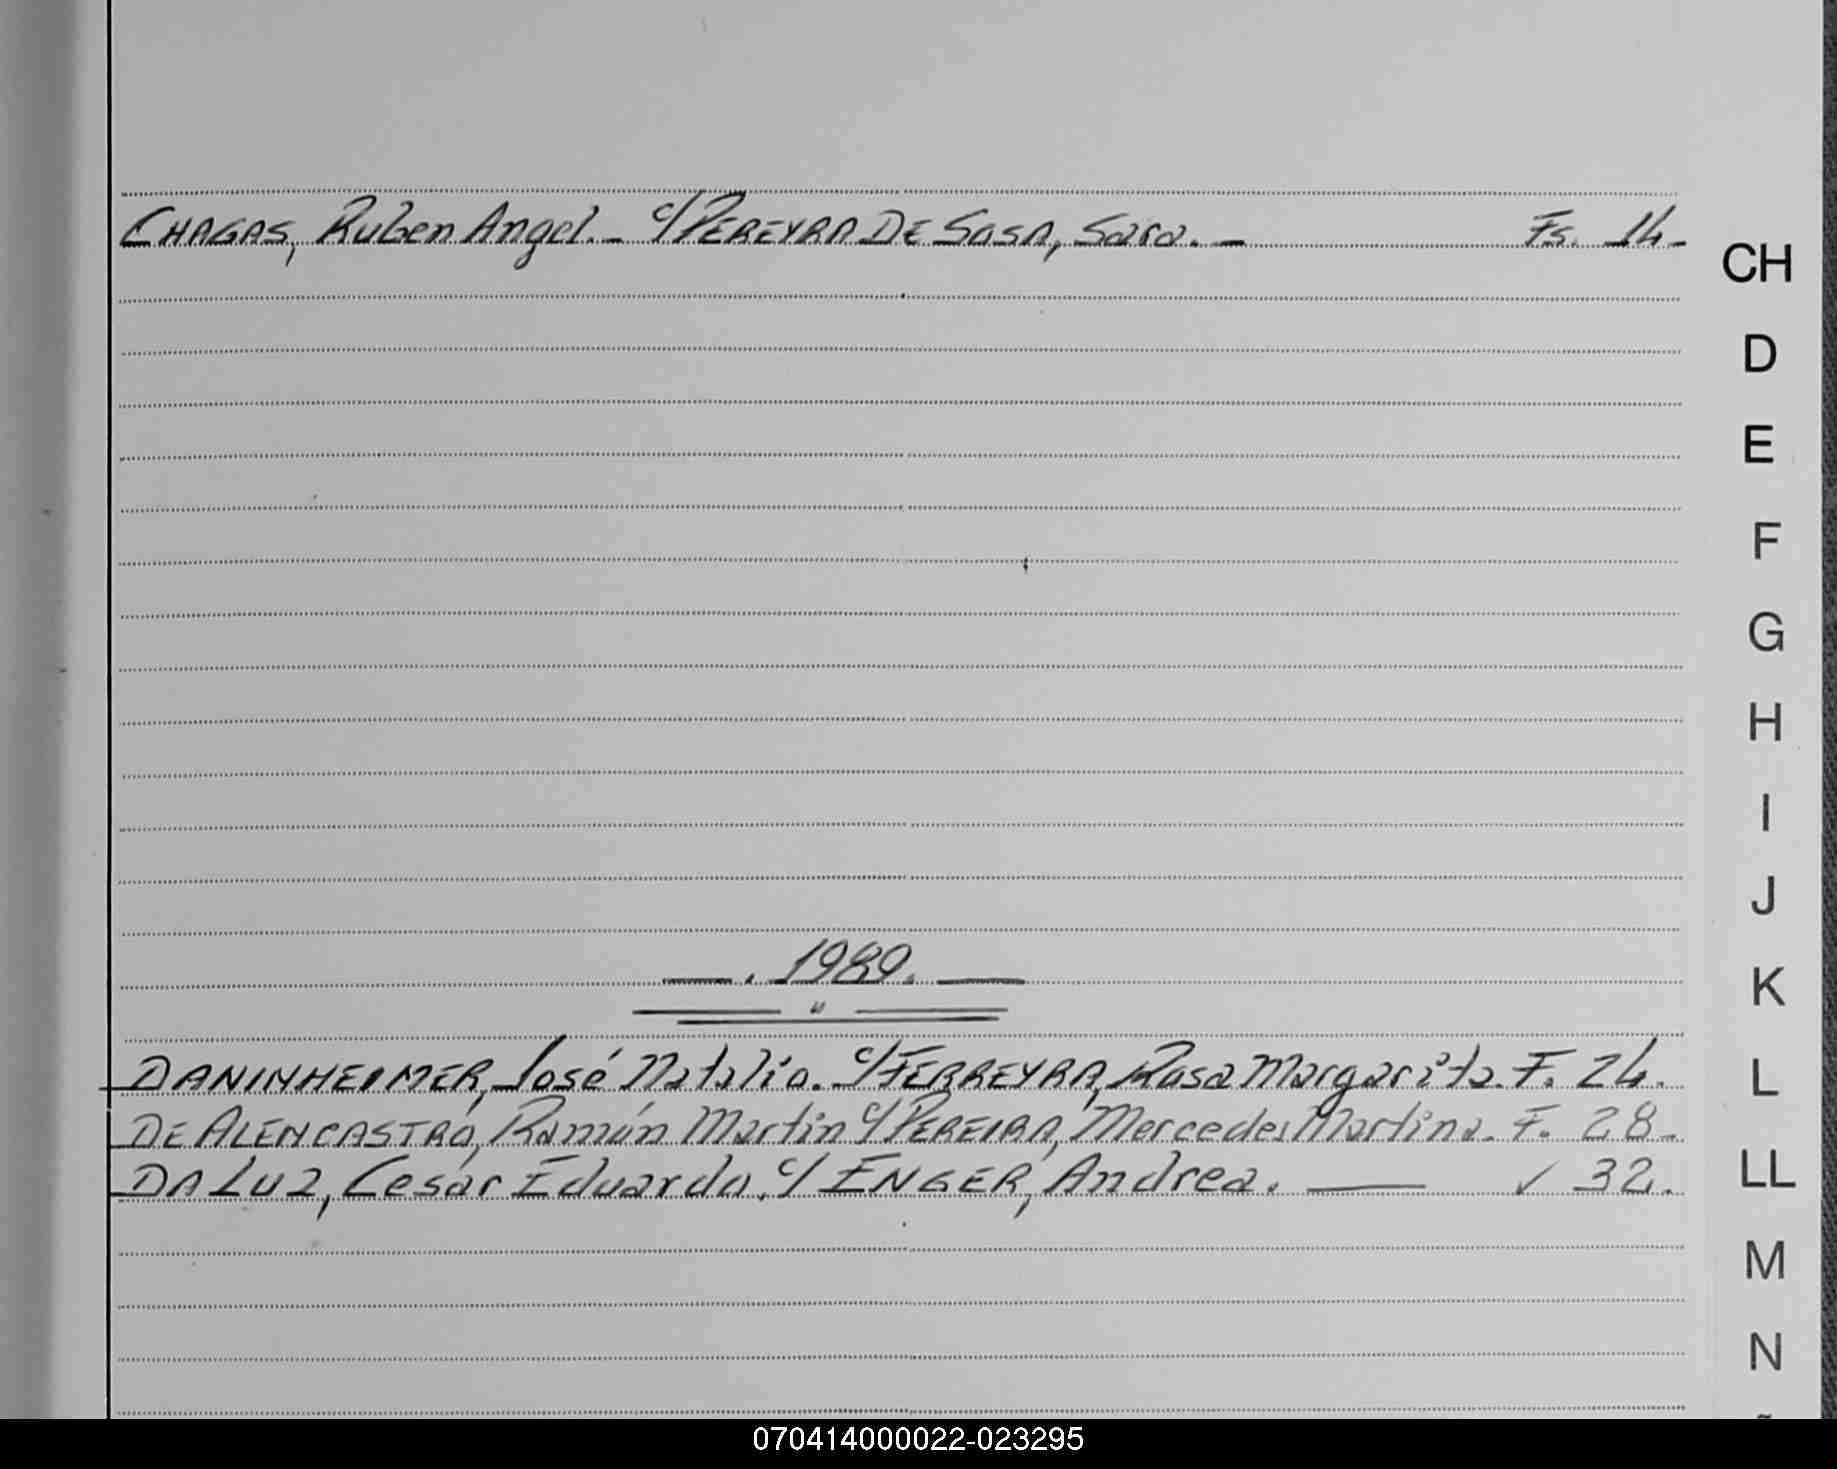 CHAGAS, Ruben Angel.- c/PEREYRA DE SOSA, Sara.- Fs. 14-
CH
D
E
F
G
H
I
J
. 1989.
K
DANINHEIMER, José Natalio. c/FERREYRA, Rosa Margarita. F. 24.
L
DE ALENCASTRO, Ramón Martin c/PEREIRA, Mercedes Martina. F. 28-
DA LUZ, Cesar Eduardo. c/ ENGER, Andrea. — ✓ 32.
LL
M
N
070414000022-023295